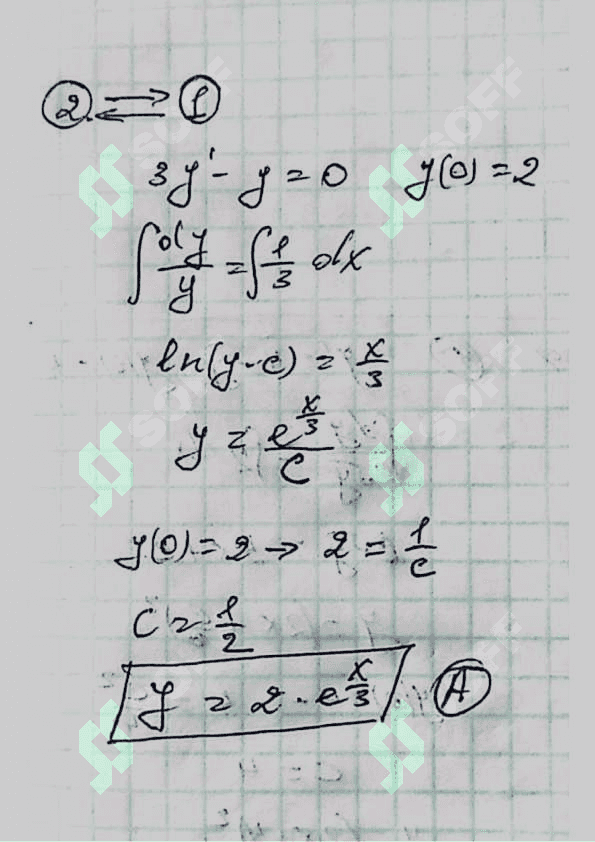 ② ⇄ ①
3y' - y = 0 y(0) = 2
∫ dy/y = ∫ 1/3 dx
ln(y·c) = x/3
y = e^(x/3)/C
y(0) = 2 → 2 = 1/c
C = 1/2
y = 2 · e^(x/3) Ⓐ
SOFF
SOFF
SOFF
SOFF
SOFF
SOFF